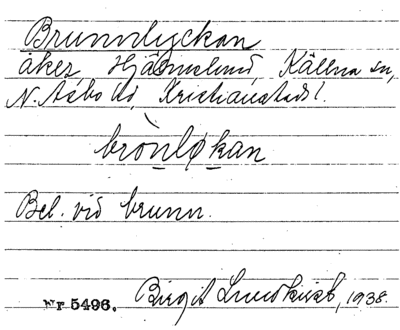 Brunnslyckan
åker, Hjälmslund, Källna sn,
N. Åsbo hd, Kristianstads l.
brònløkan
Bel. vid brunn.
Nr 5496. Birgit Lundkvist, 1938.